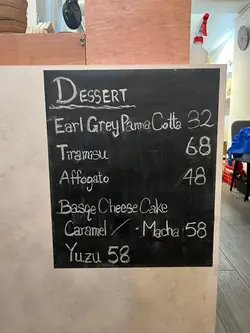 DESSERT
Earl Grey Panna Cotta 32
Tiramisu 68
Affogato 48
Basqe Cheese Cake
Caramel / - Macha 58
Yuzu 58